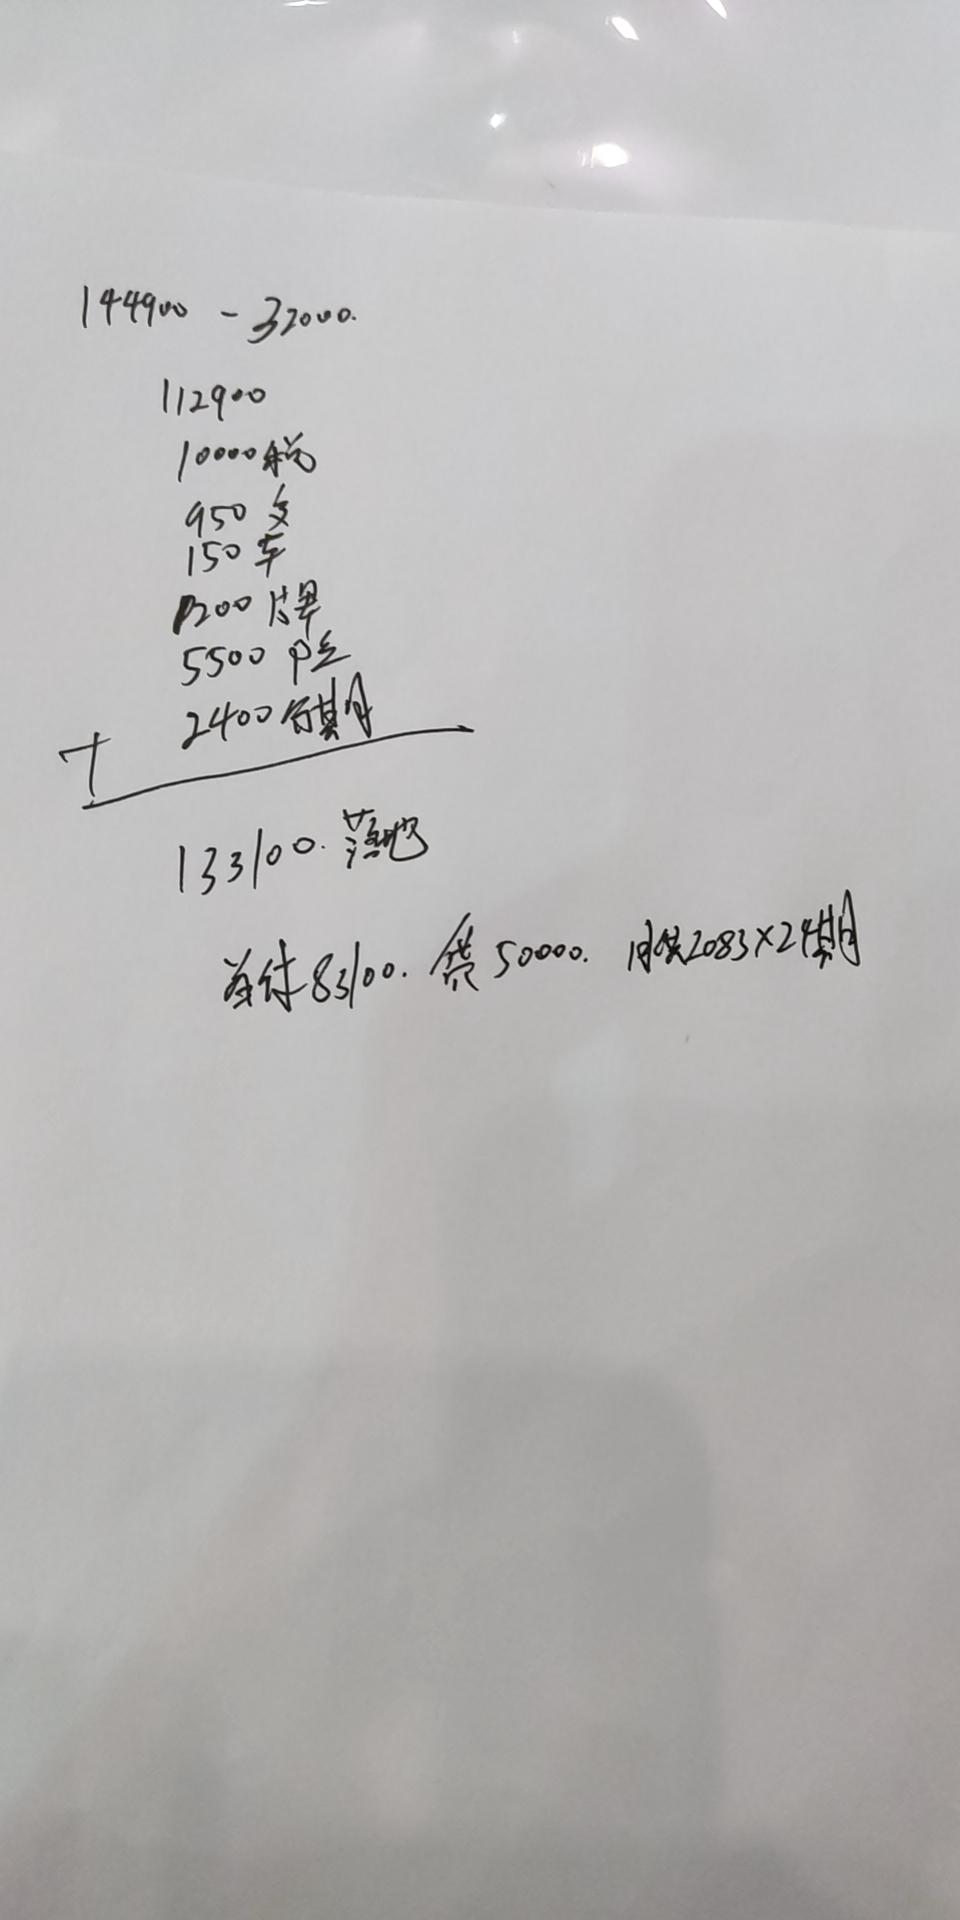 144900 - 32000.
112900
10000税
950 交
150 车
1200 牌
5500 P仝
2400分期
+
133100. 落地
首付83100. 贷50000. 月供2083×24期